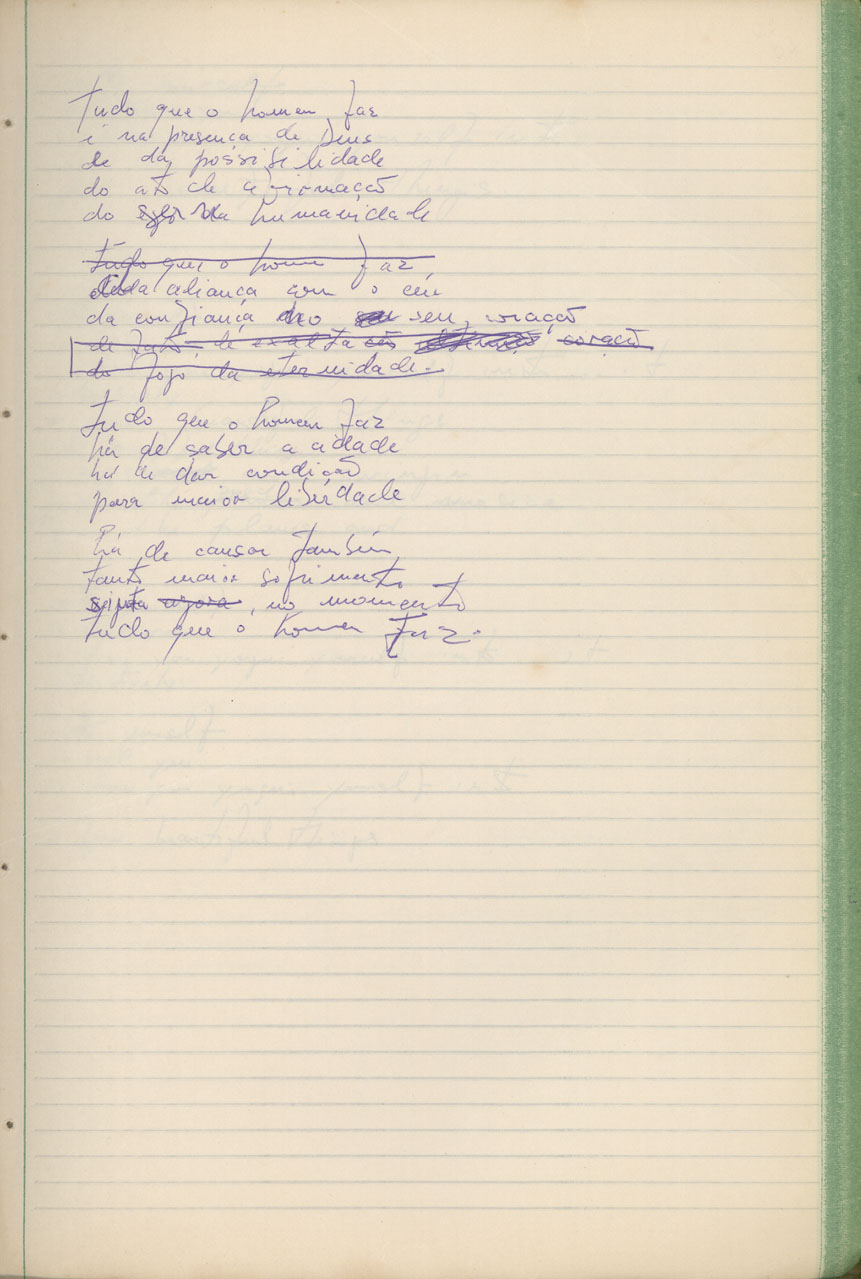 Tudo que o homem faz
é na presença de Deus
de dar possibilidade
do ato de afirmação
do da humanidade
Tudo que o homem faz
da aliança com o céu
da confiança no seu coração
de fato de exaltação coração
do fogo da eternidade.
Tudo que o homem faz
há de saber a cidade
há de dar condição
para maior liberdade
há de causar também
tanto maior sofrimento
agora, no momento
tudo que o homem faz.
yourself
beautiful things